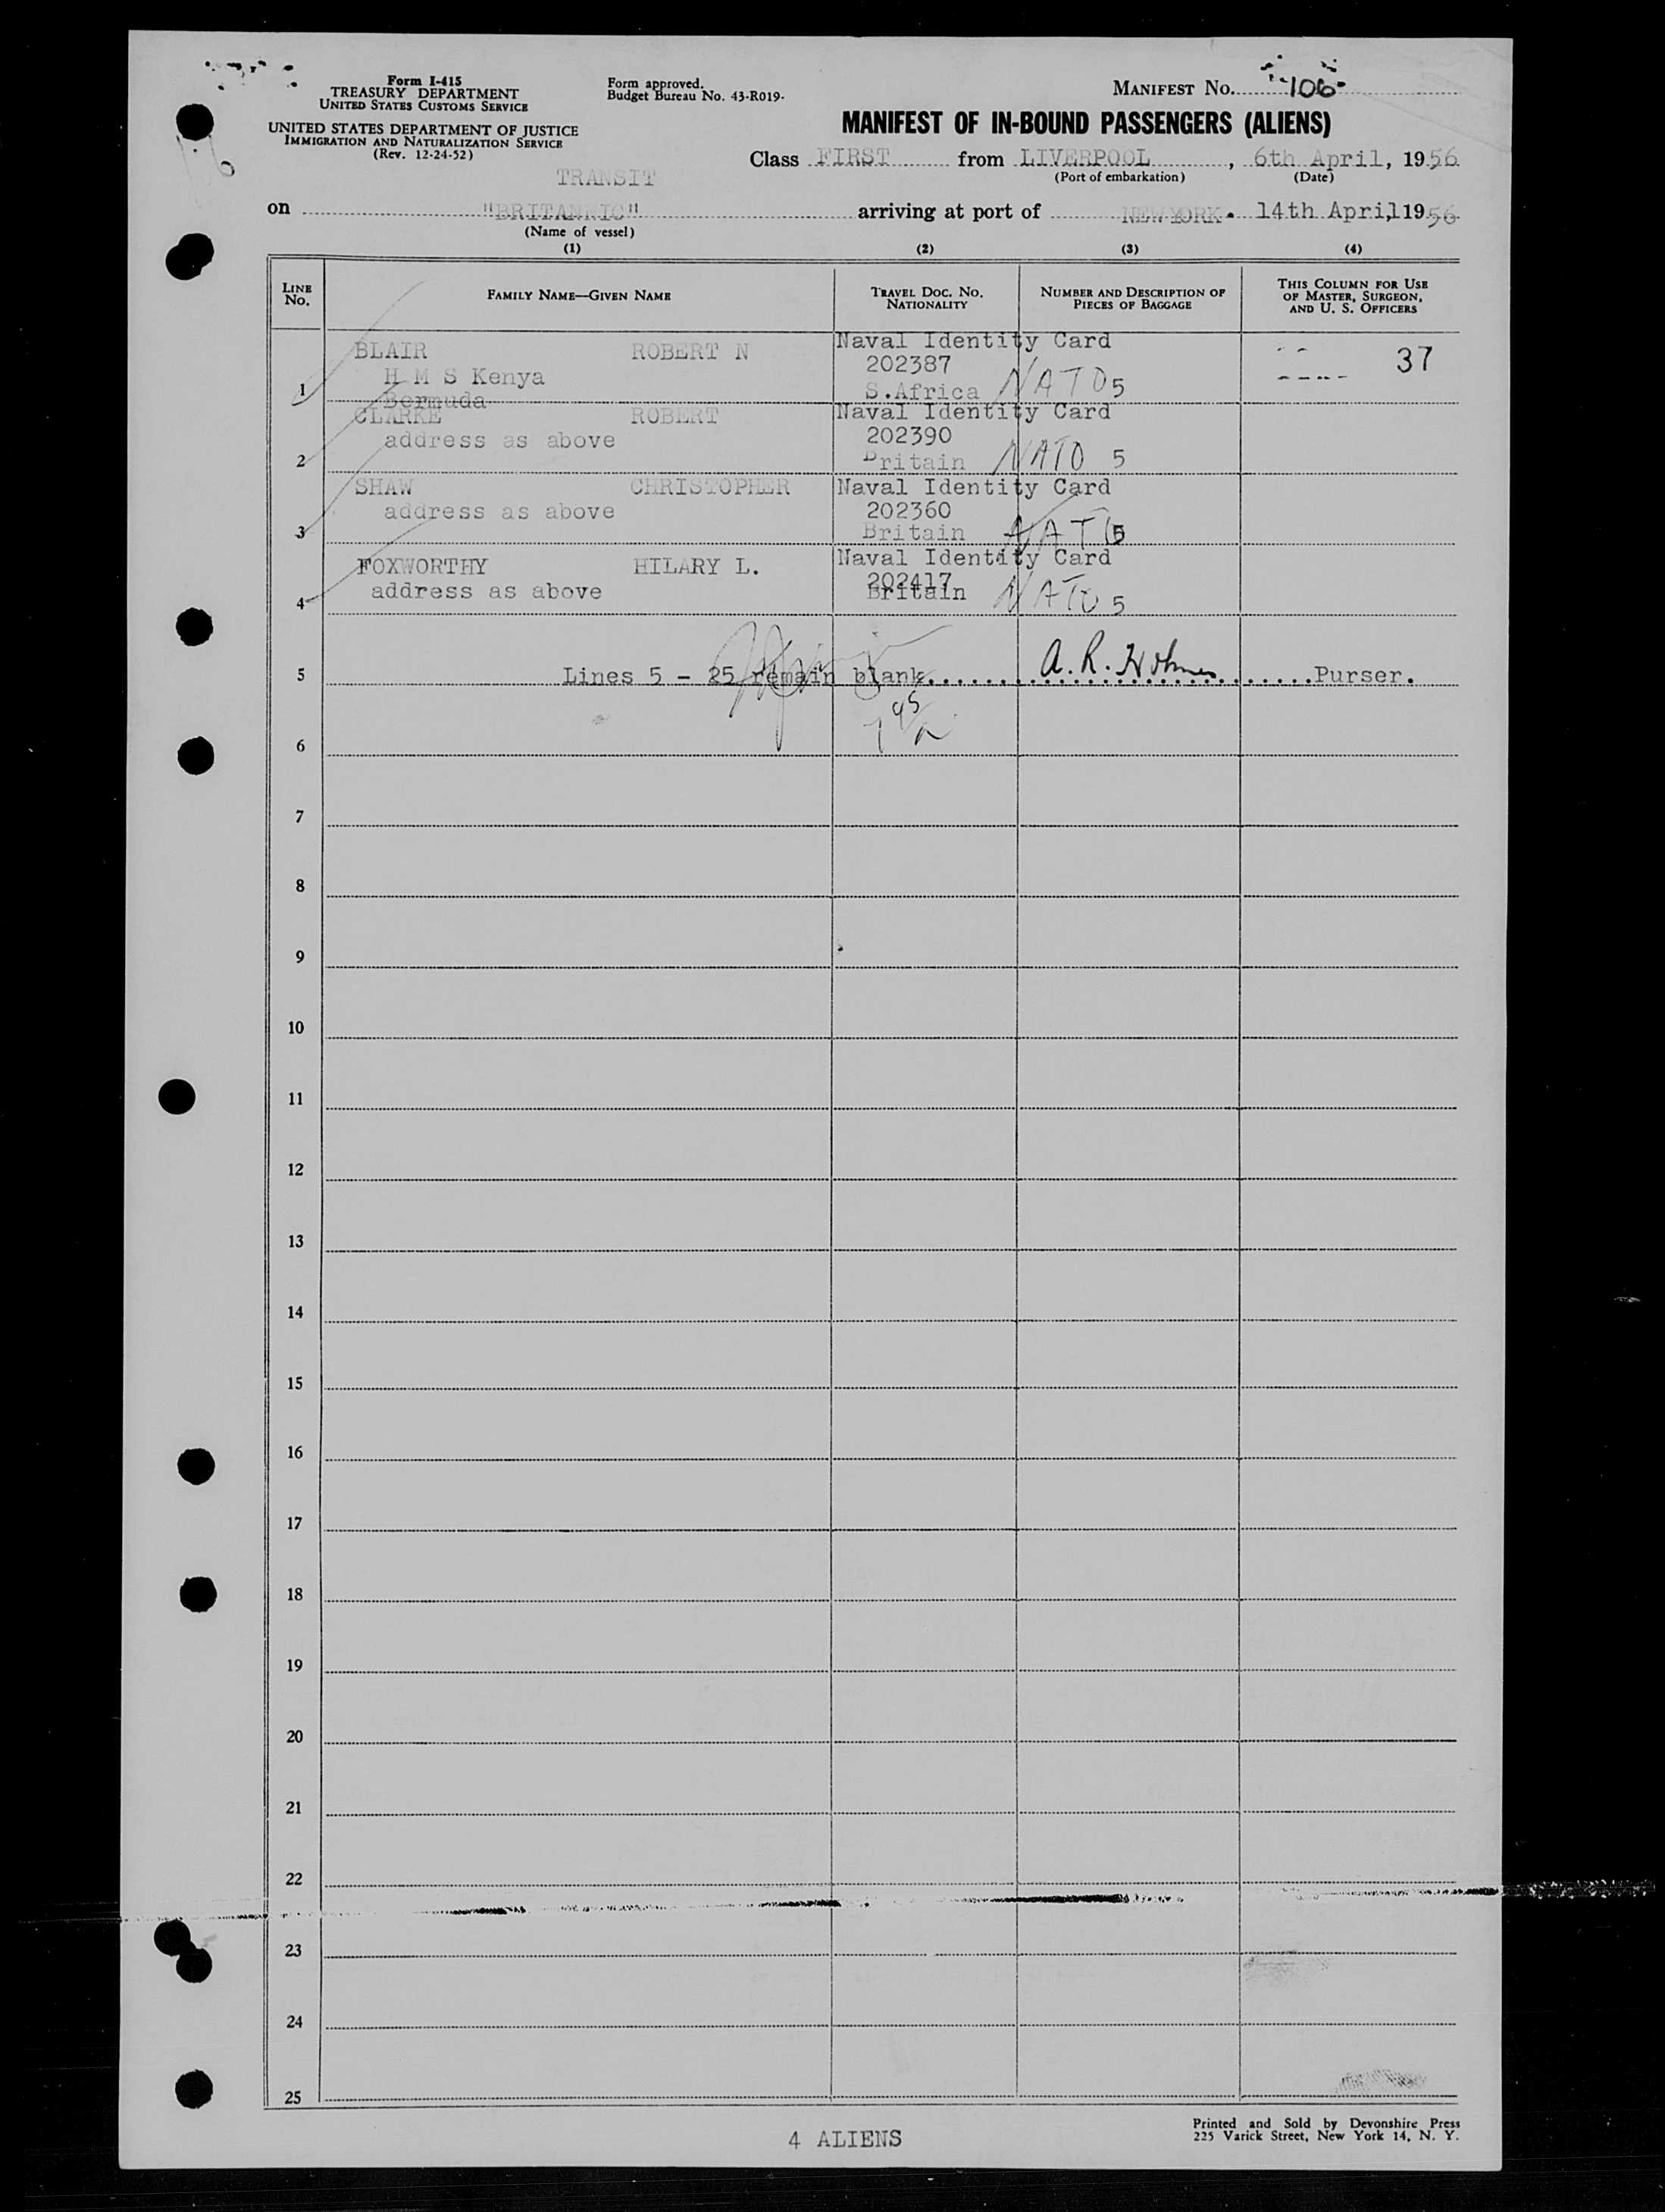 Form I-415
TREASURY DEPARTMENT
UNITED STATES CUSTOMS SERVICE
UNITED STATES DEPARTMENT OF JUSTICE
IMMIGRATION AND NATURALIZATION SERVICE
(Rev. 12-24-52)
Form approved.
Budget Bureau No. 43-R019-
MANIFEST No. 106
MANIFEST OF IN-BOUND PASSENGERS (ALIENS)
Class FIRST from LIVERPOOL, 6th April, 1956
(Port of embarkation) (Date)
TRANSIT
on "BRITANNIC" arriving at port of NEW YORK. 14th April, 1956
(Name of vessel)
(1) (2) (3) (4)
LINE No. FAMILY NAME—GIVEN NAME TRAVEL DOC. No. NATIONALITY NUMBER AND DESCRIPTION OF PIECES OF BAGGAGE THIS COLUMN FOR USE OF MASTER, SURGEON, AND U. S. OFFICERS
BLAIR ROBERT N Naval Identity Card 37
H M S Kenya 202387
1 Bermuda S.Africa NATO 5
CLARKE ROBERT Naval Identity Card
address as above 202390
2 Britain NATO 5
SHAW CHRISTOPHER Naval Identity Card
address as above 202360
3 Britain NATO 5
FOXWORTHY HILARY L. Naval Identity Card
address as above 202417
4 Britain NATO 5
5 Lines 5 - 25 remain blank. A. R. Holmes Purser.
6
7
8
9
10
11
12
13
14
15
16
17
18
19
20
21
22
23
24
25
4 ALIENS
Printed and Sold by Devonshire Press
225 Varick Street, New York 14, N. Y.